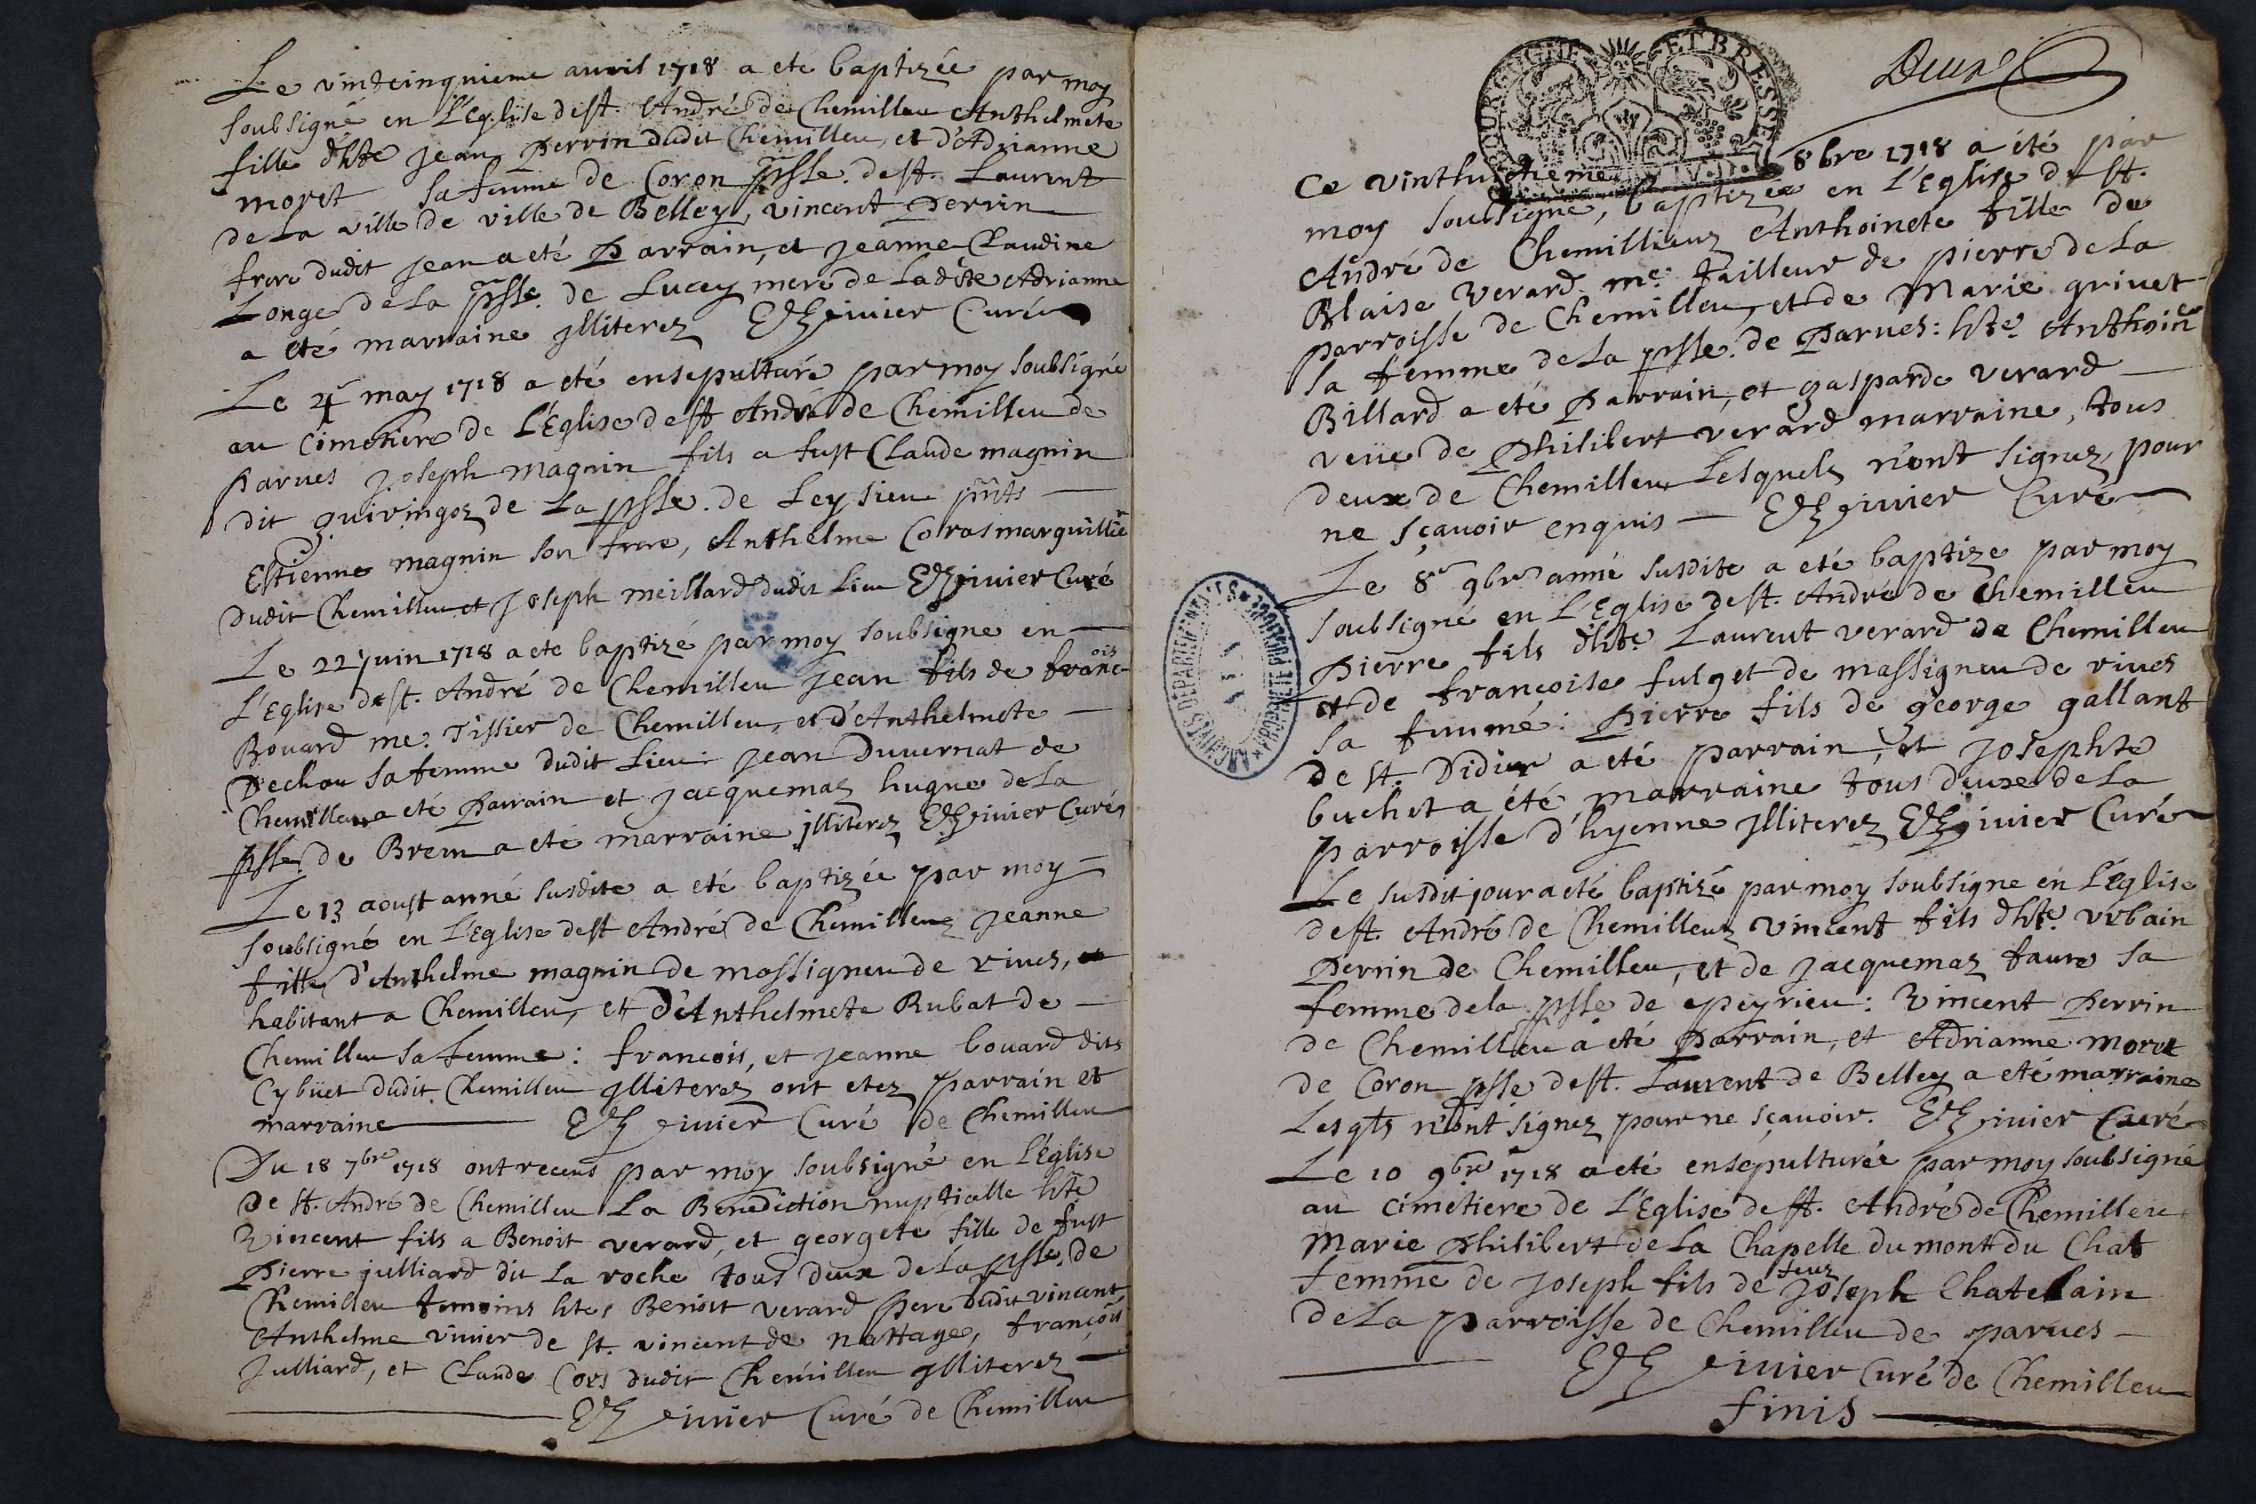 Le vintcinquieme auril 1718 a eté baptizée par moy
soubsigné en L'Eglise de st. André de Chemilleu Anthelmete
fille d'hte. jean Perrin dudit Chemilleu, et d'Adrianne
moret sa femme de Coron psse. de st. Laurent
de La ville de ville de Belley, vincent Perrin
frere dudit jean a eté Parrain, et jeanne Claudine
Longe de La psse. de Lucey mere de Ladite Adrianne
a eté marraine jlliterez viuier Curé
Le 4 may 1718 a eté ensepulturé par moy soubsigné
au Cimetiere de L'Eglise de st André de Chemilleu de
Parues joseph magnin fils a fust Claude magnin
dit guiringoz de La psse. de Leysieu pnts
Estienne magnin son frere, Anthelme Coras marguillier
dudit Chemilleu et joseph meillard dudit Lieu viuier Curé
Le 22 juin 1718 a ete baptizé par moy soubsigne en
L'Eglise de st. André de Chemilleu jean fils de francois
Bouard me. Tissier de Chemilleu, et d'Anthelmete
Dechou sa femme dudit Lieu jean Duuernat de
Chemilleu a eté Parrain et jacquemaz hugue de La
psse. de Brem a eté marraine jlliterez viuier Curé
Le 13 aoust anné susdite a eté baptizée par moy
soubsigné en L'Eglise de st André de Chemilleuz jeanne
fille d'Anthelme magnin de massigneu de riues, et
habitant a Chemilleu, et d'Anthelmete Rubat de
Chemilleu sa femme : francois, et jeanne bouard dits
Cybüet dudit Chemilleu jlliterez ont etez parrain et
marraine viuier Curé de Chemilleu
Du 18 7bre 1718 ont receus par moy soubsigné en L'Eglise
de st. André de Chemilleu La Benediction nuptialle hte
Vincent fils a Benoit verard, et georgete fille de fust
Pierre julliard dit La roche tous deux de La psse. de
Chemilleu temoins htes Benoit verard pere dudit vincent,
Anthelme viuier de st. vincent de nattage, françois
julliard, et Claude Cors dudit Chemilleu jlliterez
viuier Curé de Chemilleu
BOURGOGNE ET BRESSE
Ce vinthuitieme 8bre 1718 a été par
moy soubsigné, baptizée en L'Eglise de st.
André de Chemillieuz Anthoinete fille de
Blaise Verard me. tailleur de pierre de La
parroisse de Chemilleu, et de Marie griuet
sa femme de La psse. de Parues : hte. Anthoine
Billard a eté Parrain, et gasparde verard
veüe de Philibert verard marraine, tous
deux de Chemilleu Lesquels n'ont signez, pour
ne sçauoir enquis viuier Curé
Le 8e 9bre anné susdite a eté baptize par moy
soubsigné en L'Eglise de st. André de Chemilleu
Pierre fils d'hte. Laurent verard de Chemilleu
et de françoise fulget de massigneu de riues
sa femme : Pierre fils de george gallant
de st. Didier a eté parrain, et josephte
buchet a été marraine tous deux de La
parroisse d'hyenne jlliterez viuier Curé
ARCHIVES DEPARTEMENTALES
Le susdit jour a eté baptizé par moy soubsigne en L'Eglise
de st. André de Chemilleuz Vincent fils d'hte. vrbain
Perrin de Chemilleu, et de jacquemaz faure sa
femme de la psse de epeyrieu : Vincent Perrin
de Chemilleu a eté Parrain, et Adrianne moret
de Coron psse de st. Laurent de Belley a eté marraine
Lesqts n'ont signez pour ne sçauoir. viuier Curé
Le 10 9bre 1718 a eté ensepulturée par moy soubsigné
au Cimetiere de L'Eglise de st. André de Chemilleu
Marie Philibert de La Chapelle du mont du Chat
femme de joseph fils de feuz joseph Chatelain
de La parroisse de Chemilleu de parues
viuier Curé de Chemilleu
finis